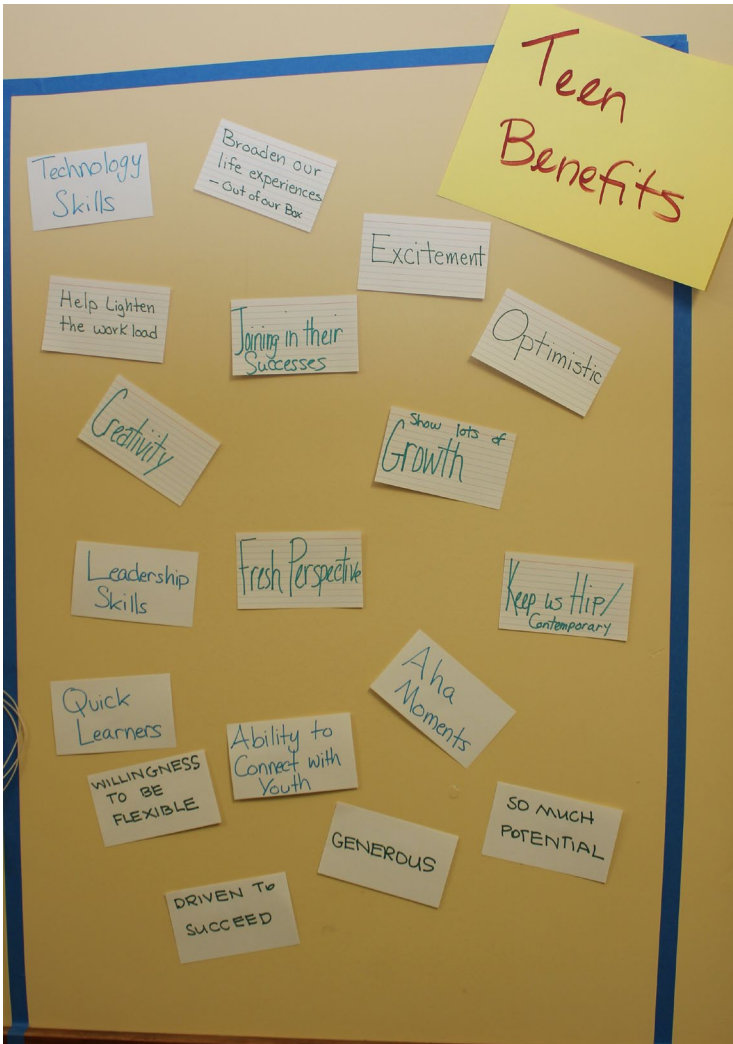 Teen
Benefits
Technology
Skills
Broaden our
life experiences
- Out of our Box
Excitement
Help Lighten
the work load
Joining in their
Successes
Optimistic
Creativity
Show lots of
Growth
Leadership
Skills
Fresh Perspective
Keep us Hip/
Contemporary
Quick
Learners
Aha
Moments
Ability to
Connect with
Youth
WILLINGNESS
TO BE
FLEXIBLE
SO MUCH
POTENTIAL
GENEROUS
DRIVEN TO
SUCCEED